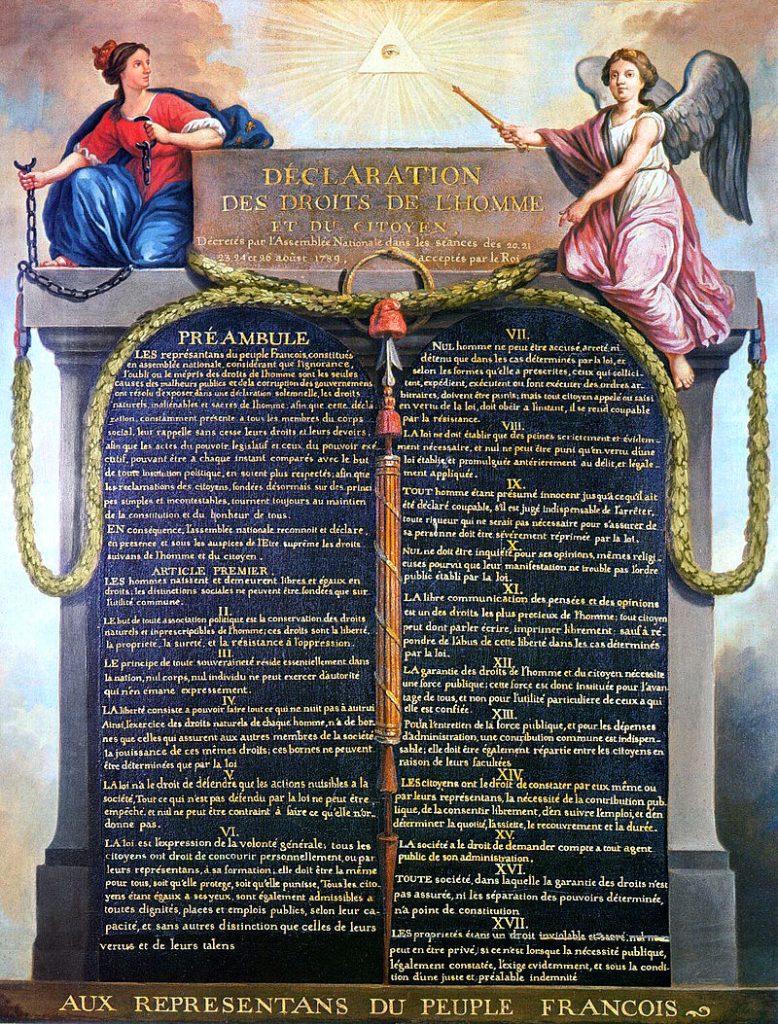 DÉCLARATION
DES DROITS DE L'HOMME
ET DU CITOYEN,
Décrétés par l'Assemblée Nationale dans les séances des 20. 21
23. 24 et 26 aoûst 1789, acceptés par le Roi
PRÉAMBULE
LES représantans du peuple Francois, constitués
en assemblée nationale, considérant que l'ignorance,
l'oubli ou le mépris des droits de l'homme sont les seules
causes des malheurs publics et de la corruption des gouvernemens
ont résolu d'exposer dans une déclaration solemnelle, les droits
naturels, inaliénables et sacrés de l'homme: afin que cette décla
ration, constamment présente à tous les membres du corps
social, leur rappelle sans cesse leurs droits et leurs devoirs
afin que les actes du pouvoir législatif et ceux du pouvoir exé
cutif, pouvant être à chaque instant comparés avec le but
de toute institution politique, en soient plus respectés; afin que
les reclamations des citoyens, fondées désormais sur des princi
pes simples et incontestables, tournent toujours au maintien
de la constitution et du bonheur de tous.
EN conséquence, l'assemblée nationale reconnoit et déclare,
en presence et sous les auspices de l'Etre suprême les droits
suivans de l'homme et du citoyen.
ARTICLE PREMIER.
LES hommes naissent et demeurent libres et égaux en
droits; les distinctions sociales ne peuvent être fondées que sur
l'utilité commune.
II.
LE but de toute association politique est la conservation des droits
naturels et inprescriptibles de l'homme; ces droits sont la liberté,
la propriété, la sureté, et la résistance à l'oppression.
III.
LE principe de toute souveraineté réside essentiellement dans
la nation, nul corps, nul individu ne peut exercer d'autorité
qui n'en émane expressement.
IV.
LA liberté consiste a pouvoir faire tout ce qui ne nuit pas à autrui
Ainsi, l'exercice des droits naturels de chaque homme, n'a de bor-
nes que celles qui assurent aux autres membres de la société
la jouissance de ces mêmes droits; ces bornes ne peuvent
être déterminées que par la loi
V.
LA loi n'a le droit de défendre que les actions nuisibles à la
société. Tout ce qui n'est pas défendu par la loi ne peut être
empêché, et nul ne peut être contraint à faire ce qu'elle n'or-
donne pas.
VI.
LA loi est l'expression de la volonté générale; tous les
citoyens ont droit de concourir personnellement, ou par
leurs représentans, à sa formation; elle doit être la même
pour tous, soit qu'elle protege, soit qu'elle punisse, Tous les cito-
yens étant égaux a ses yeux, sont également admissibles a
toutes dignités, places et emplois publics, selon leur ca-
pacité, et sans autres distinction que celles de leurs
vertus et de leurs talens
VII.
NUL homme ne peut être accusé, arreté, ni
détenu que dans les cas déterminés par la loi, et
selon les formes qu'elle a prescrites, ceux qui sollici-
tent, expédient, exécutent ou font exécuter des ordres ar-
bitraires, doivent être punis; mais tout citoyen appelé ou saisi
en vertu de la loi, doit obéir a l'instant, il se rend coupable
par la résistance.
VIII.
LA loi ne doit établir que des peines strictement et évidem-
ment nécessaire, et nul ne peut être puni qu'en vertu d'une
loi établie, et promulguée antérierement au délit, et légale-
ment appliquée.
IX.
TOUT homme étant présumé innocent jusqu'a ce qu'il ait
été déclaré coupable, s'il est jugé indispensable de l'arrêter,
toute rigueur qui ne serait pas nécessaire pour s'assurer de
sa personne doit être sévèrement réprimée par la loi.
X.
NUL ne doit être inquiété pour ses opinions, mêmes religi-
euses pourvu que leur manifestation ne trouble pas l'ordre
public établi par la loi.
XI.
LA libre communication des pensées et des opinions
est un des droits les plus precieux de l'homme; tout citoyen
peut dont parler écrire, imprimer librement: sauf a ré-
pondre de l'abus de cette liberté dans les cas déterminés
par la loi.
XII.
LA garantie des droits de l'homme et du citoyen, nécessite
une force publique; cette force est donc instituée pour l'avan-
tage de tous, et non pour l'utilité particuliere de ceux a qui
elle est confiée.
XIII.
POUR l'entretien de la force publique, et pour les dépenses
d'administration, une contribution commune est indispen-
sable; elle doit être également répartie entre les citoyens en
raison de leurs facultées
XIV.
LES citoyens ont le droit de constater par eux même ou
par leurs représentans, la nécessité de la contribution pub-
lique, de la consentir librement, d'en suivre l'emploi, et d'en
déterminer la quotité, l'assiette, le recouvrement et la durée.
XV.
LA société a le droit de demander compte a tout agent
public de son administration.
XVI.
TOUTE société, dans laquelle la garantie des droits n'est
pas assurée, ni les séparation des pouvoirs déterminée,
n'a point de constitution
XVII.
LES proprietés étant un droit inviolable et sacré, nul ne
peut en être privé, si ce n'est lorsque la nécessité publique,
légalement constatée, l'exige evidemment, et sous la condi-
tion d'une juste et préalable indemnité
AUX REPRESENTANS DU PEUPLE FRANCOIS